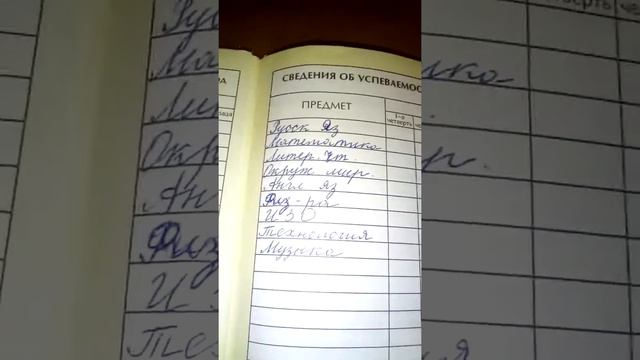 СВЕДЕНИЯ ОБ УСПЕВАЕМОС
ПРЕДМЕТ
1-я четверть
Русск яз
Математика
Литер. чт.
Окруж мир.
Англ яз
Физ-ра
ИЗО
Технология
Музыка